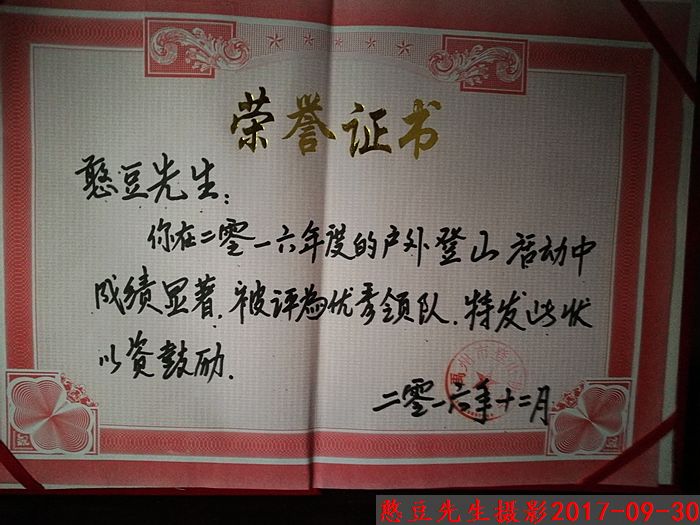 荣誉证书
憨豆先生：
你在二零一六年度的户外登山活动中
成绩显著，被评為优秀领队，特发此状
以资鼓励．
禹州市登山
二零一六年十二月
憨豆先生摄影2017-09-30